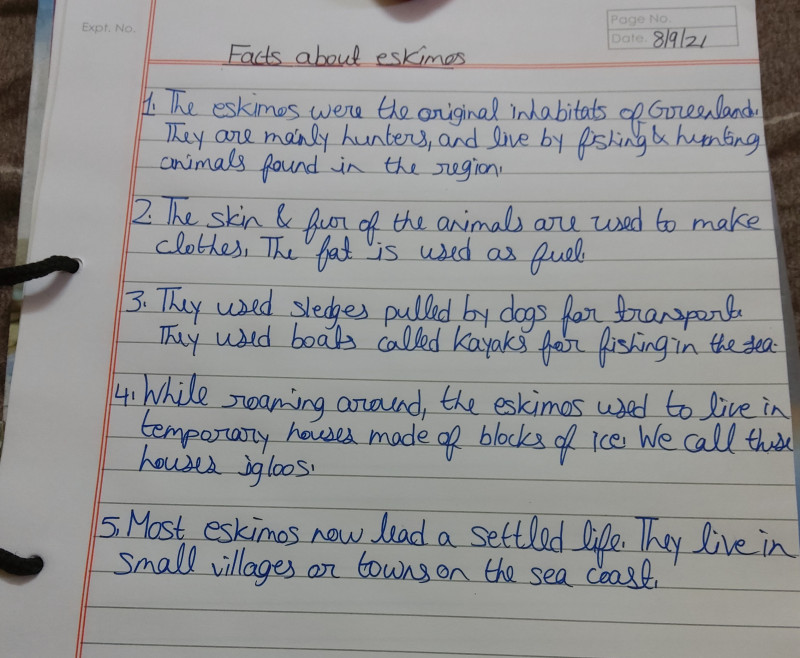 Expt. No.
Page No.
Date. 8/9/21
Facts about eskimos
1. The eskimos were the original inhabitats of Greenland.
They are mainly hunters, and live by fishing & hunting
animals found in the region.
2. The skin & fur of the animals are used to make
clothes. The fat is used as fuel.
3. They used sledges pulled by dogs for transport.
They used boats called Kayaks for fishing in the sea.
4. While roaming around, the eskimos used to live in
temporary houses made of blocks of ice. We call these
houses igloos.
5. Most eskimos now lead a settled life. They live in
small villages or towns on the sea coast.